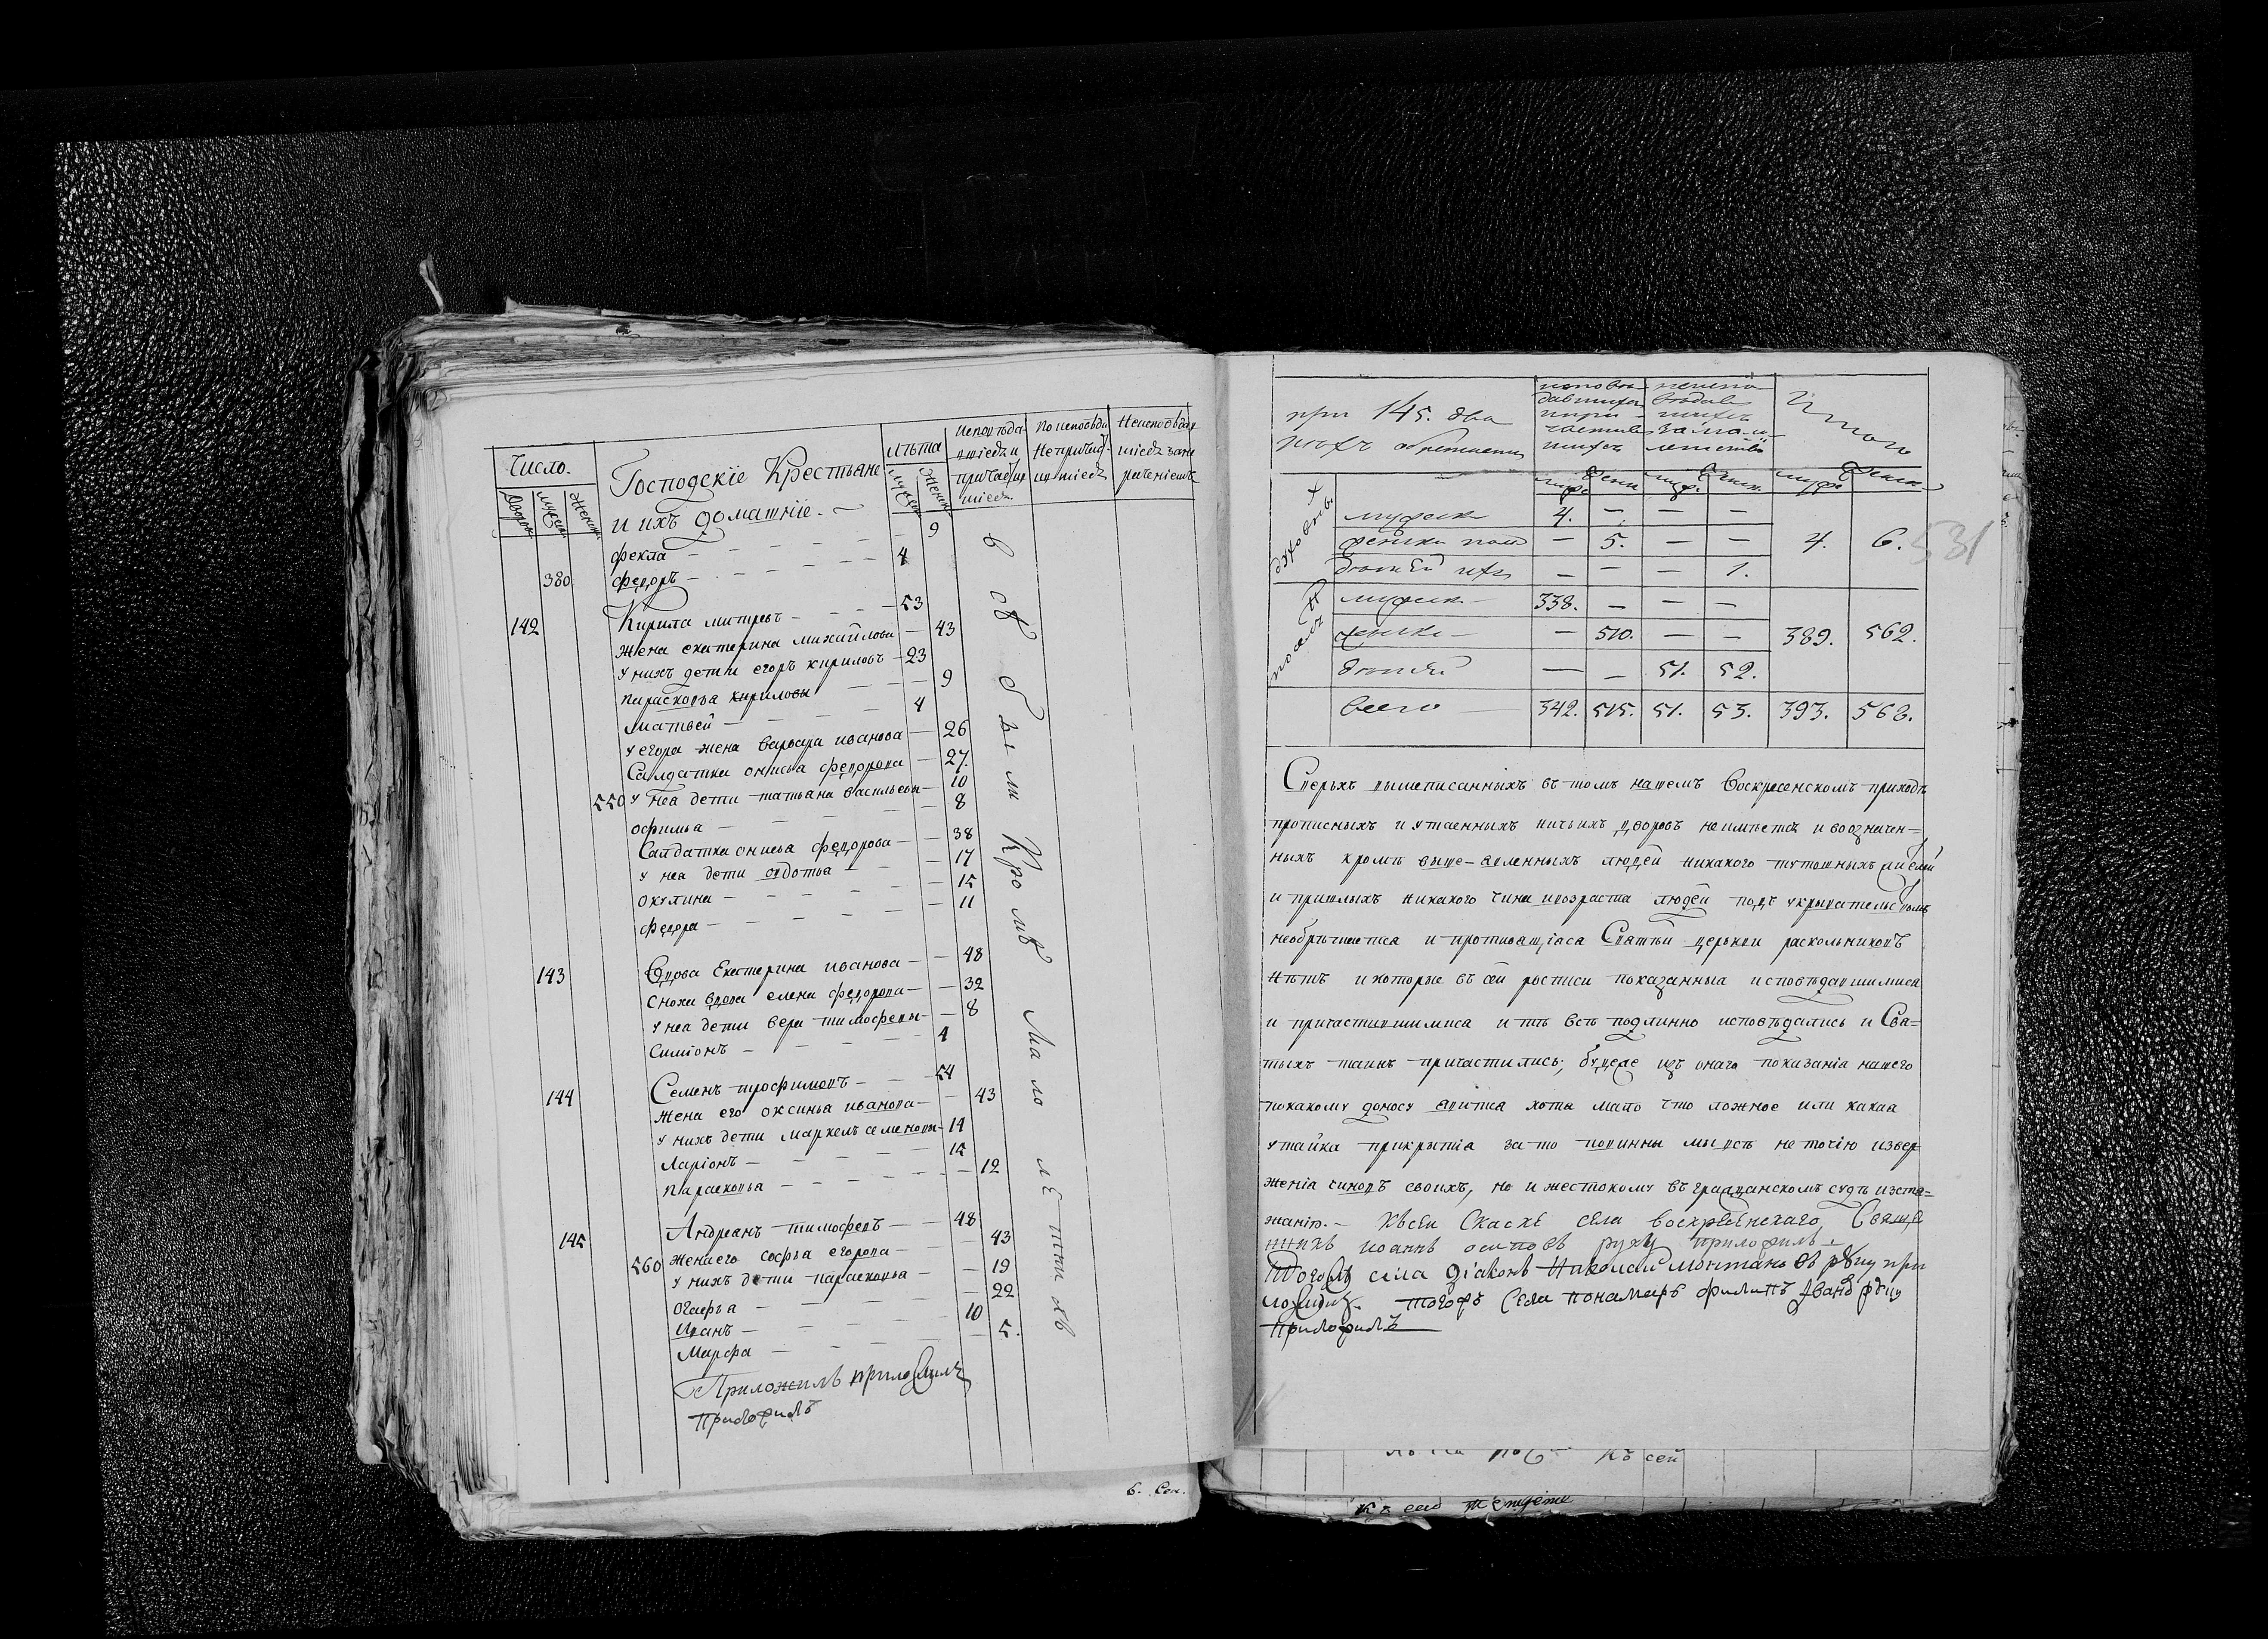 Число.
Господскіе Крестьяне
и ихъ доматніе.
лѣта
Исповѣда-
шіесѧ и
причаст
шіесѧ
По исповѣди
Непричаст
шіесѧ
Неисповѣдав
шіесѧ зане
раченіемъ
Дворовъ
мужеск
женск
мужеск
женск
фекла — 9
380 федоръ — 4
142 Кирила митревъ — 53
жена екатерина михайлова — 43
у нихъ дети егоръ кириловъ — 23
параскопья кириловы — 9
матвей — 4
у егора жена варвара иванова — 26
Салдатка онисья федорова — 27.
550 у неа дети татьяна васильевы — 10
офимья — 8
Салдатка онисья федорова — 38
у неа дети авдотья — 17
окулина — 15
федора — 11
143 Вдова Екатерина иванова — 48
Сноха вдова елена федорова — 32
у неа дети вера тимофеевы — 8
Симіонъ — 4
144 Семенъ трофимовъ — 54
жена его оксинья иванова — 43
у нихъ дети маркелъ семеновы — 19
Ларіонъ — 15
Параскопья — 12
145 Андреанъ тимофеевъ — 48
560 жена его софья егорова — 43
у нихъ дети параскопья — 19
огафья — 22
Иванъ — 10
Марфа — 5.
всѣ были Кромѣ малолѣтныхъ
Приложилъ приложилъ
приложилъ
6. Сен.
при 145. дво
рахъ обретаетца
исповѣ
давшихся
при
частив
шихся
неиспо
ведав
шихся
за мало
летство
Итого
муж. женск муж. женск. муж. женск.
духовны
мужеска 4. — — —
женска пола — 5. — — 4. 6.
детей ихъ — — — 1.
531
поселя
мужска 338. — — —
женска — 510. — — 389. 562.
детей — — 51. 52.
всего 342. 515. 51. 53. 393. 568.
Сверьхъ вышеписанныхъ въ томъ нашемъ Воскресенскомъ приходѣ
прописныхъ и утаенныхъ ничьихъ дворовъ неимѣетсѧ и во означен=
ныхъ кромѣ выше=явленныхъ людей никакого тутошныхъ жителей
и пришлыхъ никакого чина и возраста людей подъ укрывательствомъ
необрѣтаютсѧ и противящіася Святѣй церькви раскольниковъ
нѣтъ и которые въ сей росписи показанныя исповѣдавшимися
и причастившимися и тѣ всѣ подлинно исповѣдались и Свя=
тыхъ таинъ причастились; буде же изъ онаго показанія нашего
покакому доносу явитца хотя мало что ложное или какая
утайка прикрытія за то повинны мы все не точію извер
женія чиновъ своихъ, но и жестокому въ гражданскомъ судѣ изстя=
жанію. — Ксеи Скаске села воскресенскаго, Свяще
никъ иоаннъ осиповъ руку приложилъ
Того жъ села діаконъ Николай монтановъ руку при
ложилъ. Тогожъ Села пономарь филипъ Ивановъ руку
приложилъ
къ сей